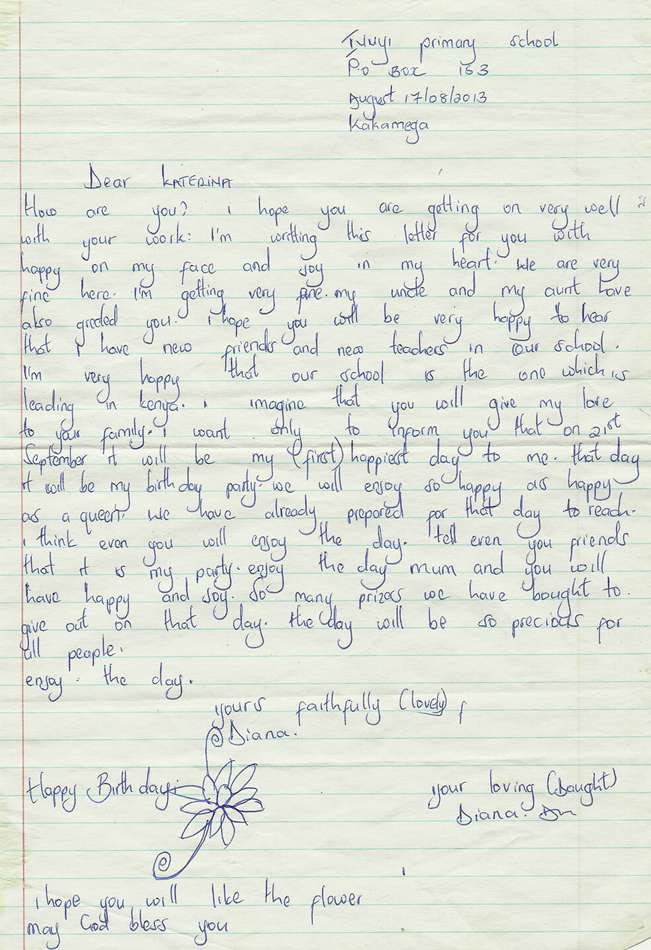 Ivuyi primary school
Po Box 153
August 17/08/2013
Kakamega
Dear KATERINA
How are you? i hope you are getting on very well
with your work: I'm writting this latter for you with
happy on my face and Joy in my heart. We are very
fine here. I'm getting very fine. my uncle and my aunt have
also greeted you. i hope you will be very happy to hear
that i have new friends and new teachers in our school.
I'm very happy that our school is the one which is
leading in kenya. i imagine that you will give my love
to your family. i want only to inform you that on 21st
September it will be my (first) happiest day to me. that day
it will be my birth day party. we will enjoy so happy as happy
as a queen. we have already prepared for that day to reach.
i think even you will enjoy the day. tell even you friends
that it is my party. enjoy the day mum and you will
have happy and Joy. so many prizes we have bought to.
give out on that day. the day will be so precious for
all people.
enjoy. the day.
yours faithfully (lovely)
Diana.
Happy Birth day.
your loving (Daught)
Diana.
i hope you will like the flower
may God bless you